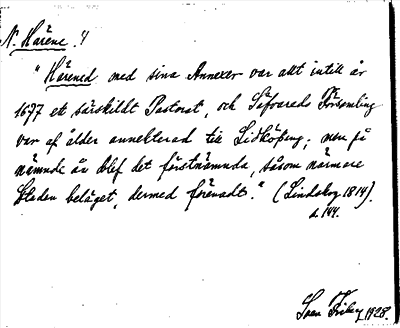 N. Härene. 4
"Härened med sina Annexer var allt intill år
1677 ett särskildt Pastorat, och Säfvareds Församling
var af ålder annekterad till Lidköping; men på
nämnde år blef det förstnämnda, såsom närmare
Staden beläget, dermed förenadt." (Lindskog 1814).
s. 144.
Sven 1928.